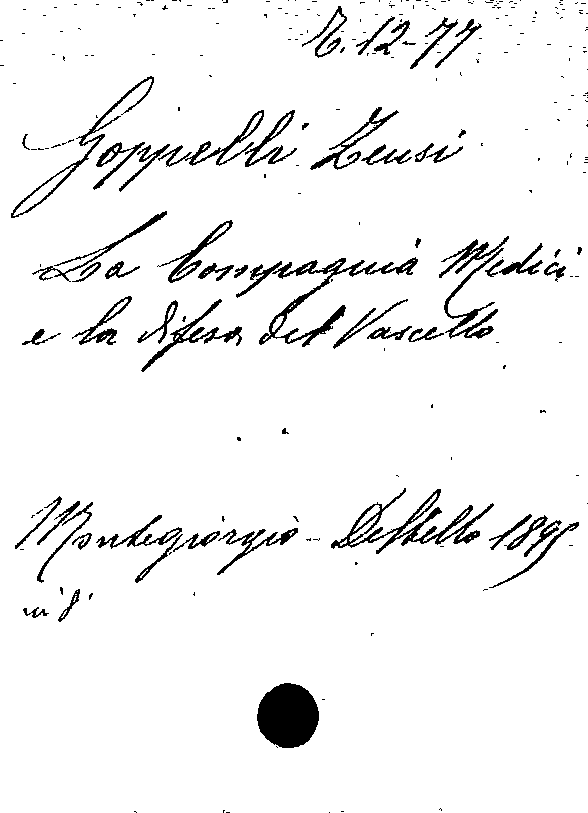 Z. 12-77
Goppelli Zeusi
La Compagnia Medici
e la difesa del Vascello
Montegiorgio - Destello 1895
in 8.